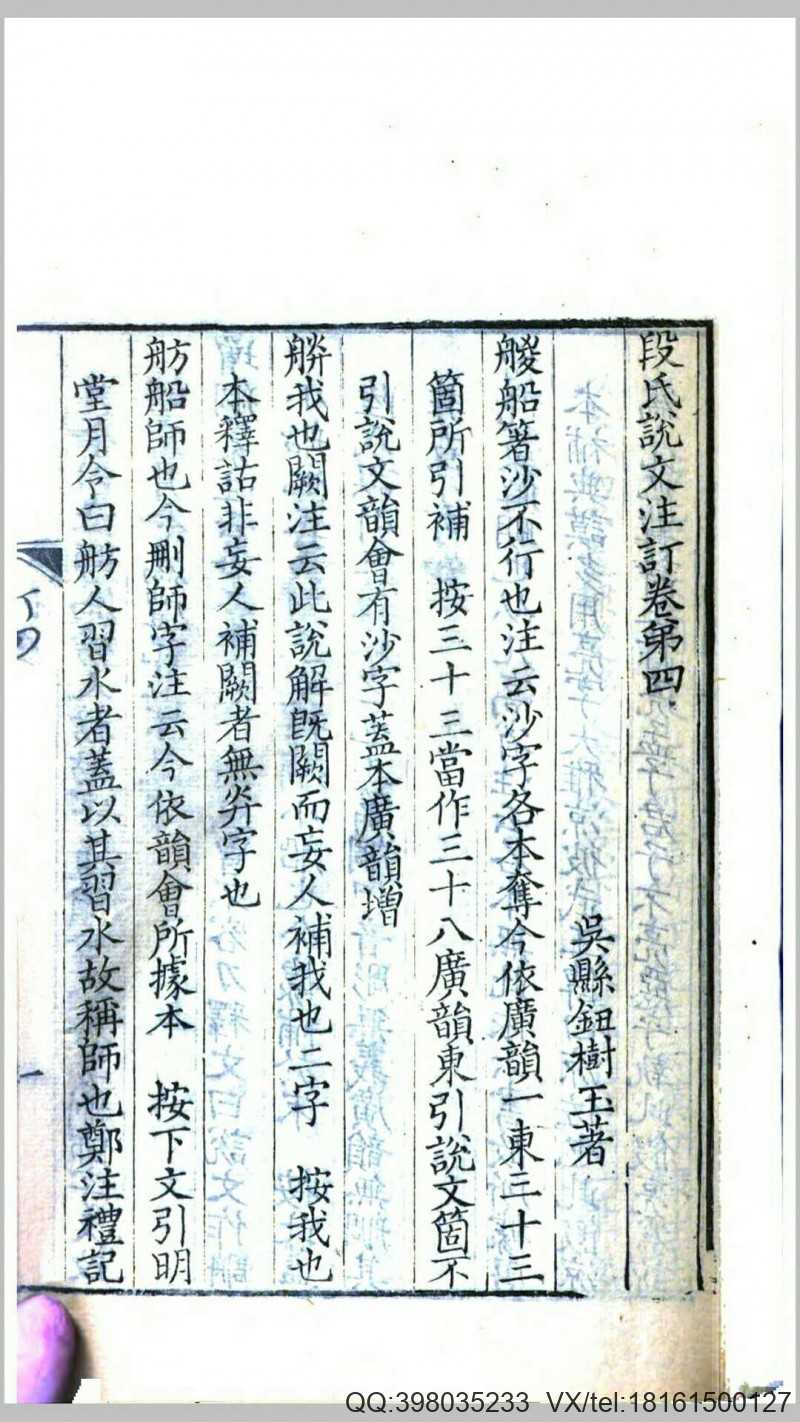 段氏說文注訂卷第四
吳縣鈕樹玉著
艐船箸沙不行也注云沙字各本奪今依廣韻一東三十三
箇所引補　按三十三當作三十八廣韻東引說文箇不
引說文韻會有沙字蓋本廣韻增
我也闕注云此說解旣闕而妄人補我也二字　按我也
本釋詁非妄人補闕者無灷字也
舫船師也今刪師字注云今依韻會所據本　按下文引明
堂月令曰舫人習水者蓋以其習水故稱師也鄭注禮記
QQ:398035233 VX/tel:18161500127